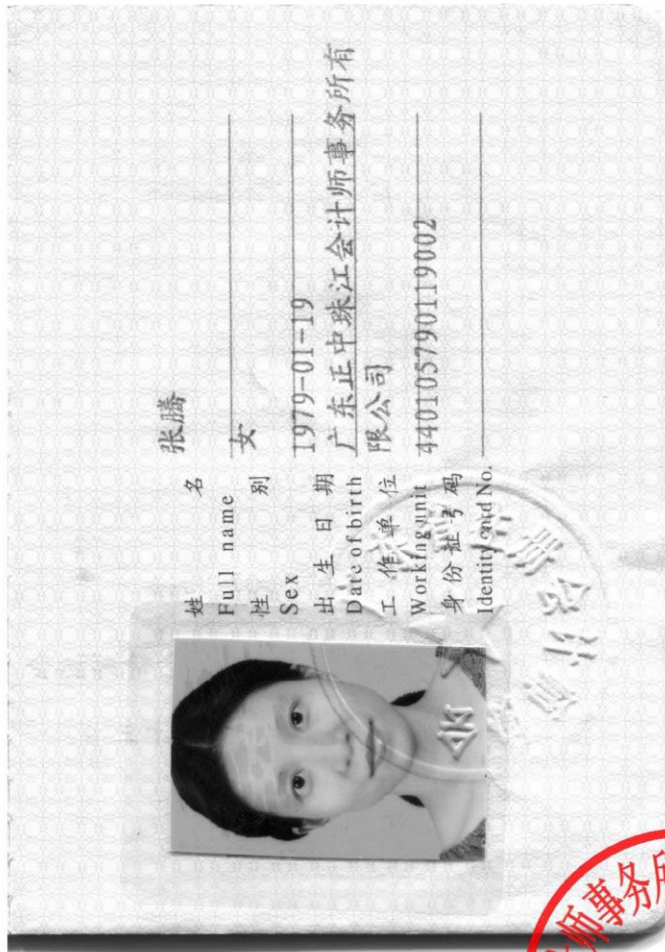 姓 名 张腾
Full name
性 别 女
Sex
出 生 日 期 1979-01-19
Date of birth
工 作 单 位 广东正中珠江会计师事务所有
限公司
Working unit
身 份 证 号 码 440105790119002
Identity card No.
师事务所